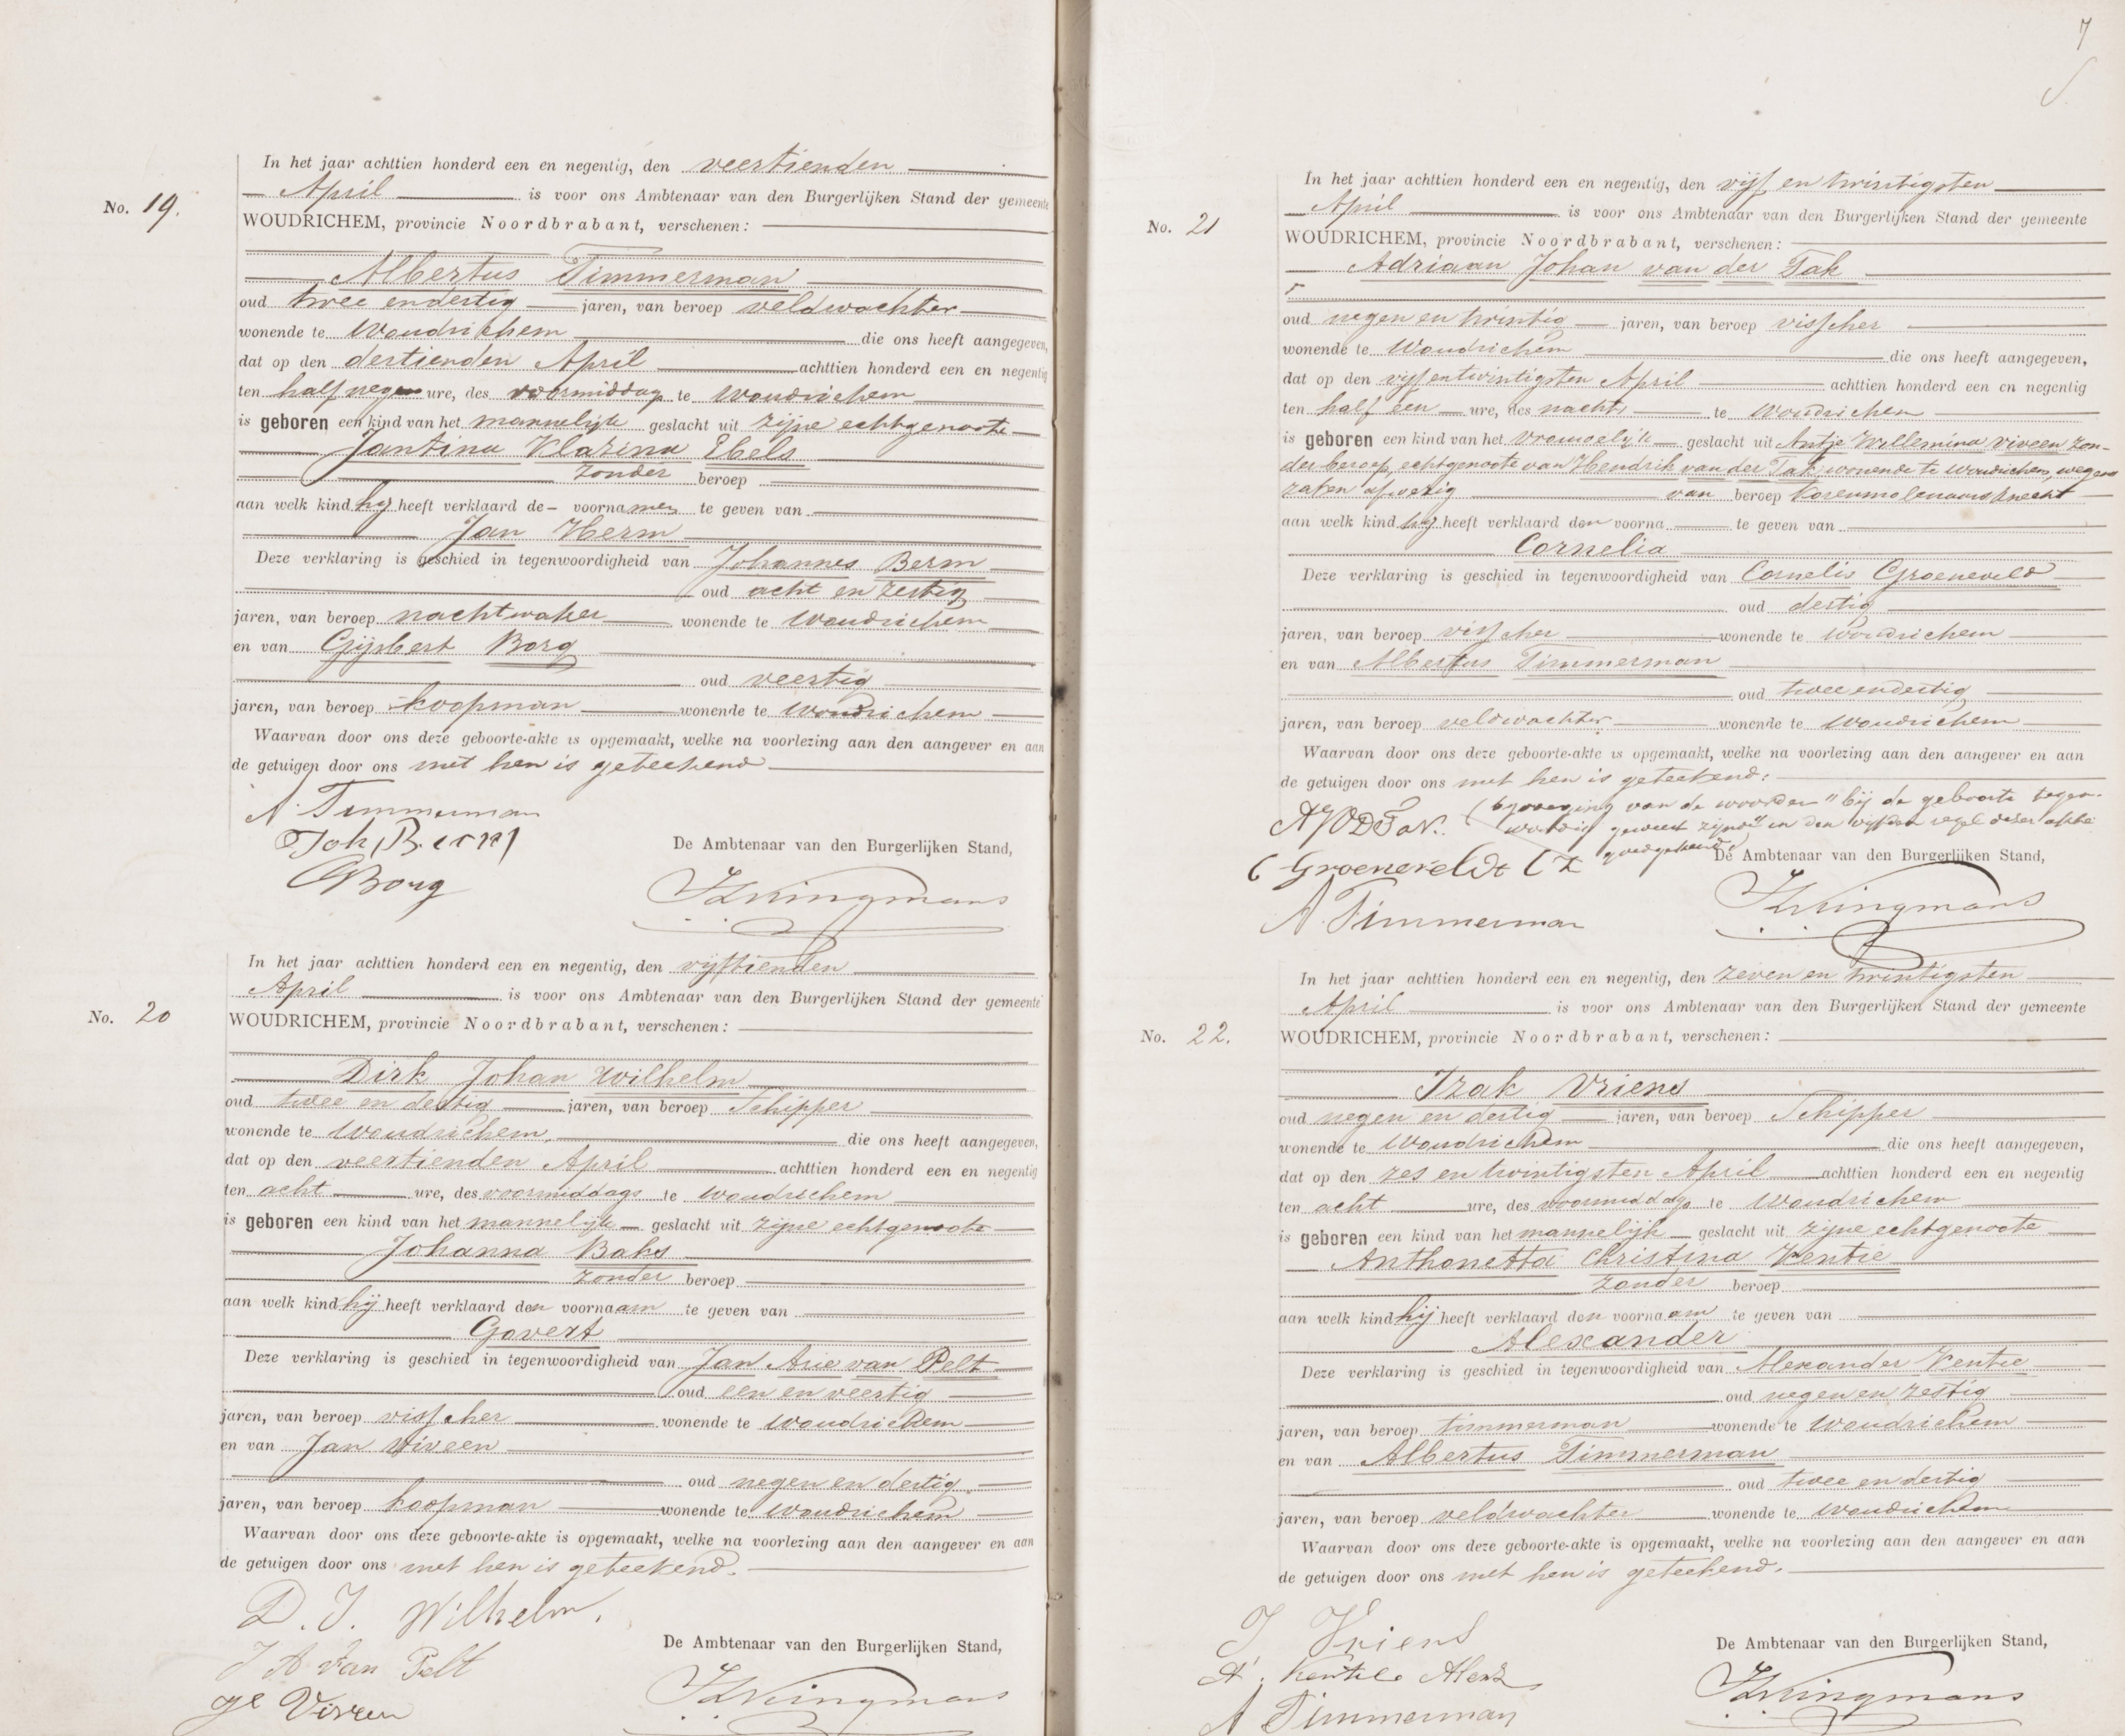 No. 19.
In het jaar achttien honderd een en negentig, den veertienden
April is voor ons Ambtenaar van den Burgerlijken Stand der gemeente
WOUDRICHEM, provincie Noordbrabant, verschenen:
Albertus Timmerman
oud twee en dertig jaren, van beroep veldwachter
wonende te Woudrichem die ons heeft aangegeven,
dat op den dertienden April achttien honderd een en negentig
ten half negen ure, des voormiddags te Woudrichem
is geboren een kind van het mannelijk geslacht uit zijne echtgenoote
Jantina Klazina Ebels
zonder beroep
aan welk kind hij heeft verklaard de voornamen te geven van
Jan Herm
Deze verklaring is geschied in tegenwoordigheid van Johannes Berm
oud acht en zestig
jaren, van beroep nachtwaker wonende te Woudrichem
en van Gijsbert Borg
oud veertig
jaren, van beroep koopman wonende te Woudrichem
Waarvan door ons deze geboorte-akte is opgemaakt, welke na voorlezing aan den aangever en aan
de getuigen door ons met hen is geteekend
A. Timmerman
Joh Berm
G Borg
De Ambtenaar van den Burgerlijken Stand,
No. 20
In het jaar achttien honderd een en negentig, den vijftienden
April is voor ons Ambtenaar van den Burgerlijken Stand der gemeente
WOUDRICHEM, provincie Noordbrabant, verschenen:
Dirk Johan Wilhelm
oud twee en dertig jaren, van beroep Schipper
wonende te Woudrichem die ons heeft aangegeven,
dat op den veertienden April achttien honderd een en negentig
ten acht ure, des voormiddags te Woudrichem
is geboren een kind van het mannelijk geslacht uit zijne echtgenoote
Johanna Baks
zonder beroep
aan welk kind hij heeft verklaard den voornaam te geven van
Govert
Deze verklaring is geschied in tegenwoordigheid van Jan Arie van Pelt
oud een en veertig
jaren, van beroep visscher wonende te Woudrichem
en van Jan Viveen
oud negen en dertig
jaren, van beroep koopman wonende te Woudrichem
Waarvan door ons deze geboorte-akte is opgemaakt, welke na voorlezing aan den aangever en aan
de getuigen door ons met hen is geteekend.
D. J. Wilhelm.
J A van Pelt
De Ambtenaar van den Burgerlijken Stand,
7
No. 21
In het jaar achttien honderd een en negentig, den vijf en twintigsten
April is voor ons Ambtenaar van den Burgerlijken Stand der gemeente
WOUDRICHEM, provincie Noordbrabant, verschenen:
Adriaan Johan van der Tak
oud negen en twintig jaren, van beroep visscher
wonende te Woudrichem die ons heeft aangegeven,
dat op den vijf en twintigsten April achttien honderd een en negentig
ten half een ure, des nachts te Woudrichem
is geboren een kind van het vrouwelijk geslacht uit Antje Willemina Viveen zon-
der beroep, echtgenoote van Hendrik van der Tak, wonende te Woudrichem, wegens
zaken afwezig van beroep korenmolenaarsknecht
aan welk kind hij heeft verklaard den voorna te geven van
Cornelia
Deze verklaring is geschied in tegenwoordigheid van Cornelis Groeneveld
oud dertig
jaren, van beroep visscher wonende te Woudrichem
en van Albertus Timmerman
oud twee en dertig
jaren, van beroep veldwachter wonende te Woudrichem
Waarvan door ons deze geboorte-akte is opgemaakt, welke na voorlezing aan den aangever en aan
de getuigen door ons met hen is geteekend.
(bijvoeging van de woorden "bij de geboorte tegen-
woordig geweest zijnde" in den vijfden regel dezer akte
goedgekeurd)
A J V D Tak.
C Groeneveldt Cz
A. Timmerman
De Ambtenaar van den Burgerlijken Stand,
No. 22.
In het jaar achttien honderd een en negentig, den zeven en twintigsten
April is voor ons Ambtenaar van den Burgerlijken Stand der gemeente
WOUDRICHEM, provincie Noordbrabant, verschenen:
Izak Vriens
oud negen en dertig jaren, van beroep Schipper
wonende te Woudrichem die ons heeft aangegeven,
dat op den zes en twintigsten April achttien honderd een en negentig
ten acht ure, des voormiddags te Woudrichem
is geboren een kind van het mannelijk geslacht uit zijne echtgenoote
Anthonetta Christina Kentie
zonder beroep
aan welk kind hij heeft verklaard den voornaam te geven van
Alexander
Deze verklaring is geschied in tegenwoordigheid van Alexander Kentie
oud negen en zestig
jaren, van beroep timmerman wonende te Woudrichem
en van Albertus Timmerman
oud twee en dertig
jaren, van beroep veldwachter wonende te Woudrichem
Waarvan door ons deze geboorte-akte is opgemaakt, welke na voorlezing aan den aangever en aan
de getuigen door ons met hen is geteekend.
I Vriens
A Timmerman
De Ambtenaar van den Burgerlijken Stand,